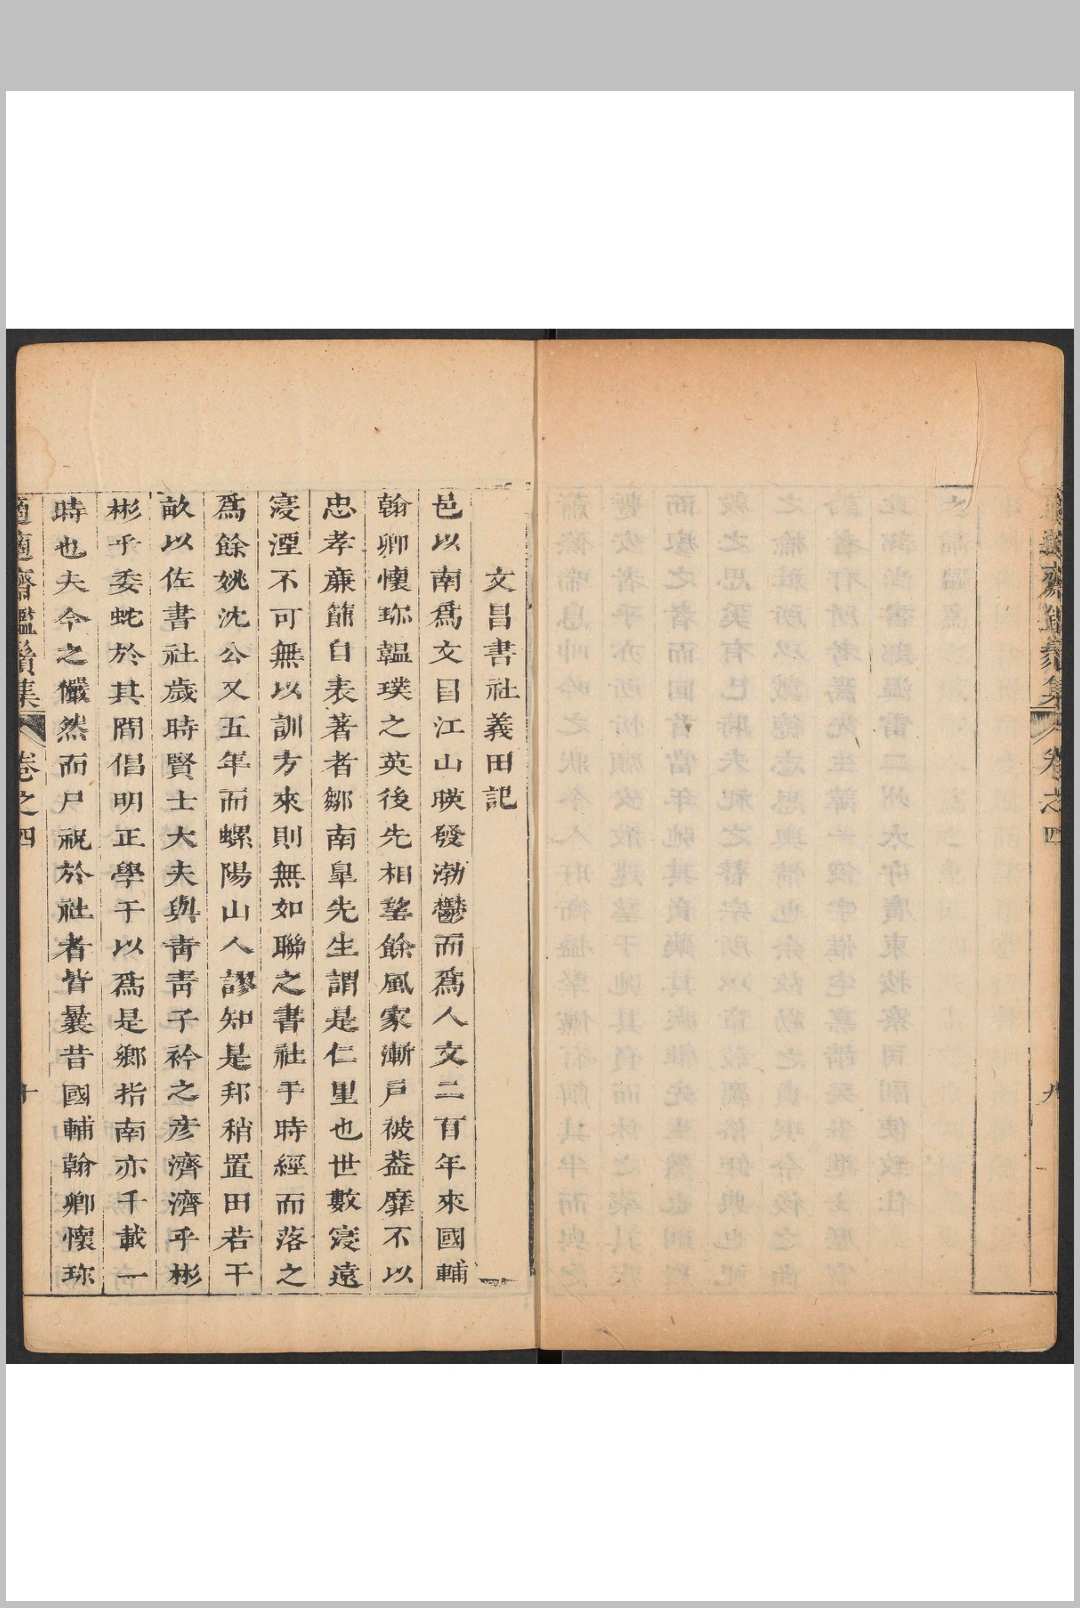 適適齋鑑鬚集 卷之四 九
文昌書社義田記
邑以南爲文目江山暎發渤鬱而爲人文二百年來國輔
翰卿懷珎韞璞之英後先相望餘風家漸戸被葢靡不以
忠孝亷節自表著者鄒南臯先生謂是仁里也世數寖遠
寖湮不可無以訓方來則無如聯之書社于時經而落之
爲餘姚沈公又五年而螺陽山人謬知是邦稍置田若干
畝以佐書社歲時賢士大夫與靑靑子衿之彦濟濟乎彬
彬乎委蛇於其間倡明正學于以爲是鄉指南亦千載一
時也夫今之儼然而尸祝於社者皆曩昔國輔翰卿懷珎
適適齋鑑鬚集 卷之四 十